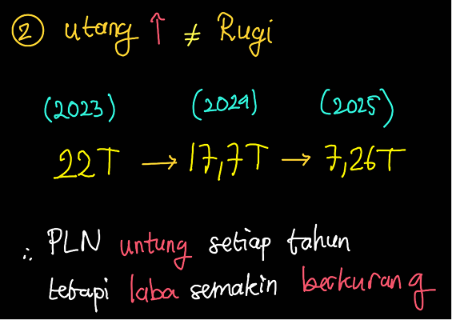 ② utang ↑ ≠ Rugi
(2023) (2024) (2025)
22T → 17,7T → 7,26T
∴ PLN untung setiap tahun
tetapi laba semakin berkurang